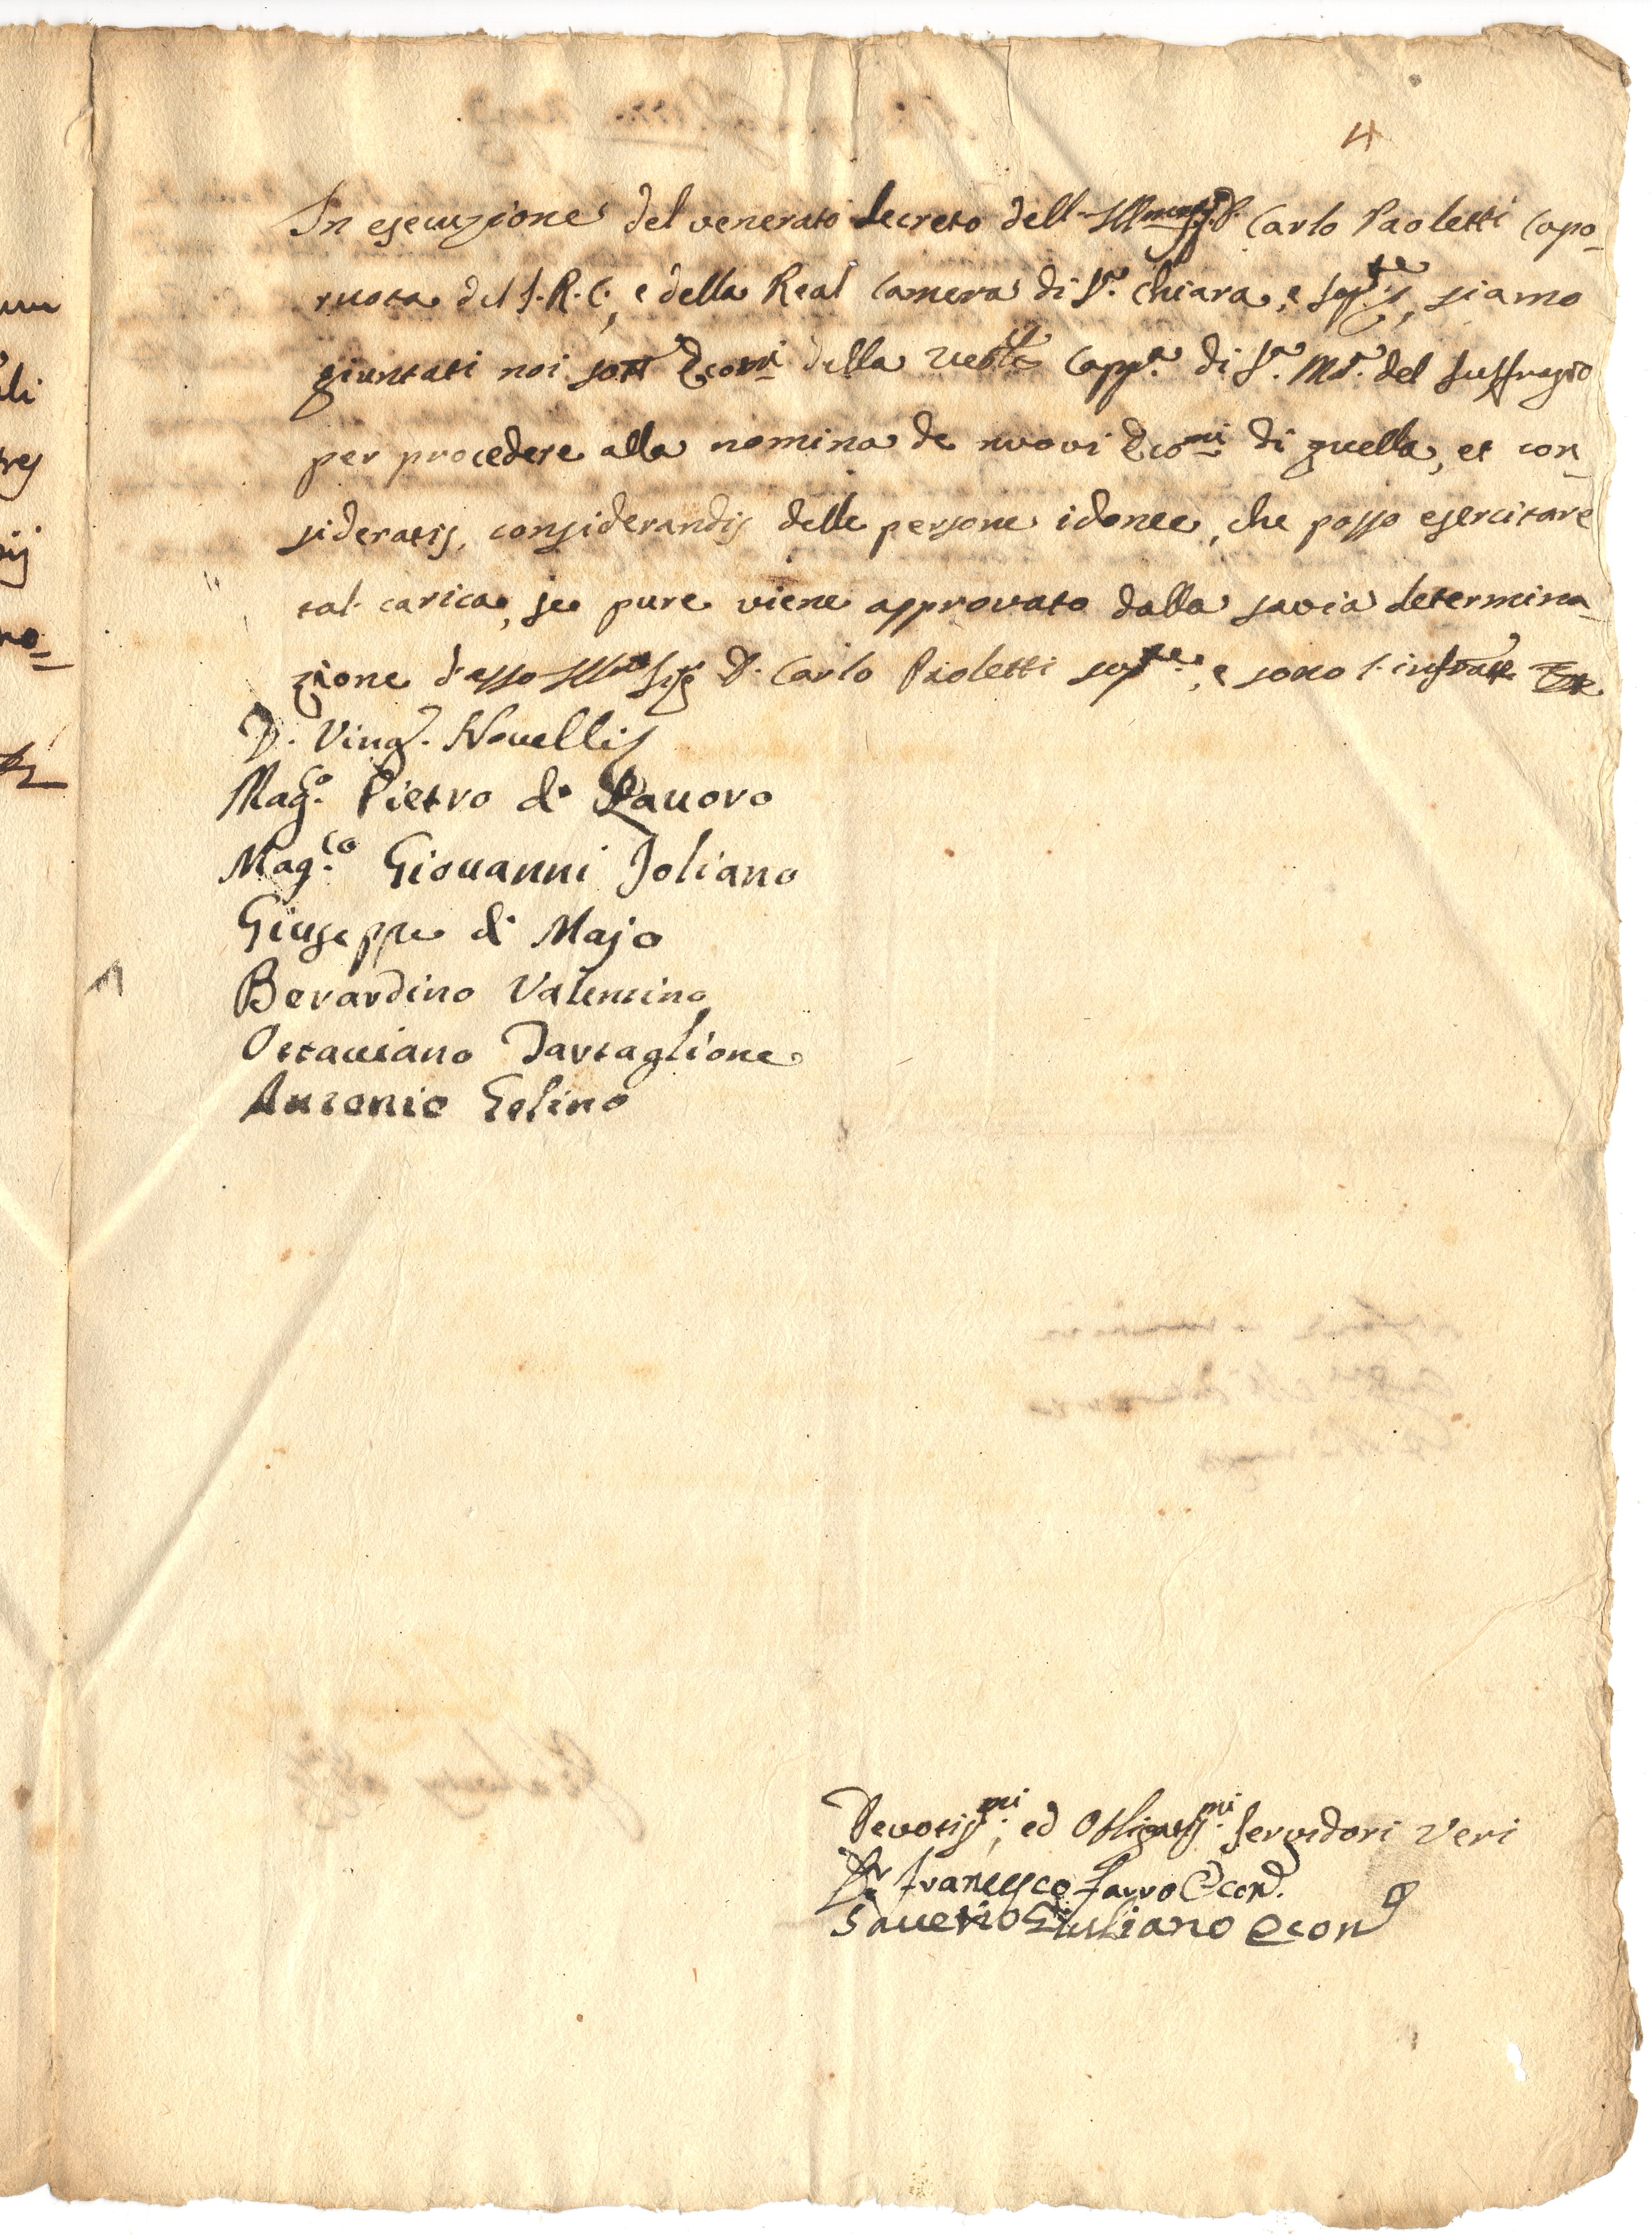 4
In esecuzione del venerato decreto dell. Ill.mo Sig.r D. Carlo Paoletti Capo-
ruota del S. R. C., e della Real Camera di S.a Chiara, e siamo
giuntati noi sott.i Econ.mi della Ven.le Capp.a di S.a M.a del Suffragio
per procedere alla nomina de nuovi Eco.mi di quella, et con-
sideratis, considerandis delle persone idonee, che posso esercitare
tal carica, se pure viene approvato dalla savia determina-
zione d'esso Ill.mo Sig.r D. Carlo Paoletti, e sono l'infratte
D. Vinc.o Novellis
Mag.co Pietro di Lauoro
Mag.co Giouanni Joliano
Giuseppe di Majo
Berardino Valentino
Ottauiano Tartaglione
Antonio Golino
Devotiss.mi, ed Obligatiss.mi Servidori Veri
D.r Francesco Farro Econ.o
Sauerio Giuliano Econ.o